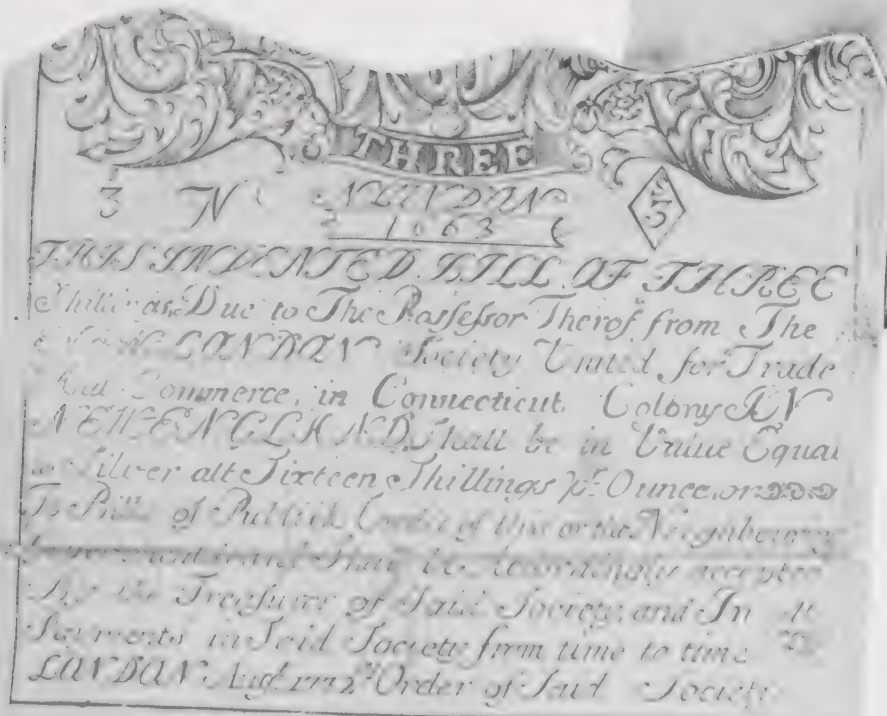 THREE
3 No N LONDON 3
1663
THIS INDENTED BILL OF THREE
Shillings Due to The Possessor Therof from The
LONDON Society United for Trade
And Commerce, in Connecticut Colony IN
NEW ENGLAND, Shall be in Value Equal
to Silver att Sixteen Shillings pr Ounce, or
To Bills of Publick Credit of this or the Neighbouring
Shall be Accordingly accepted
By the Treasurer of Said Society, and In
Payments in Said Society from time to time
LONDON Augt Order of Said Society